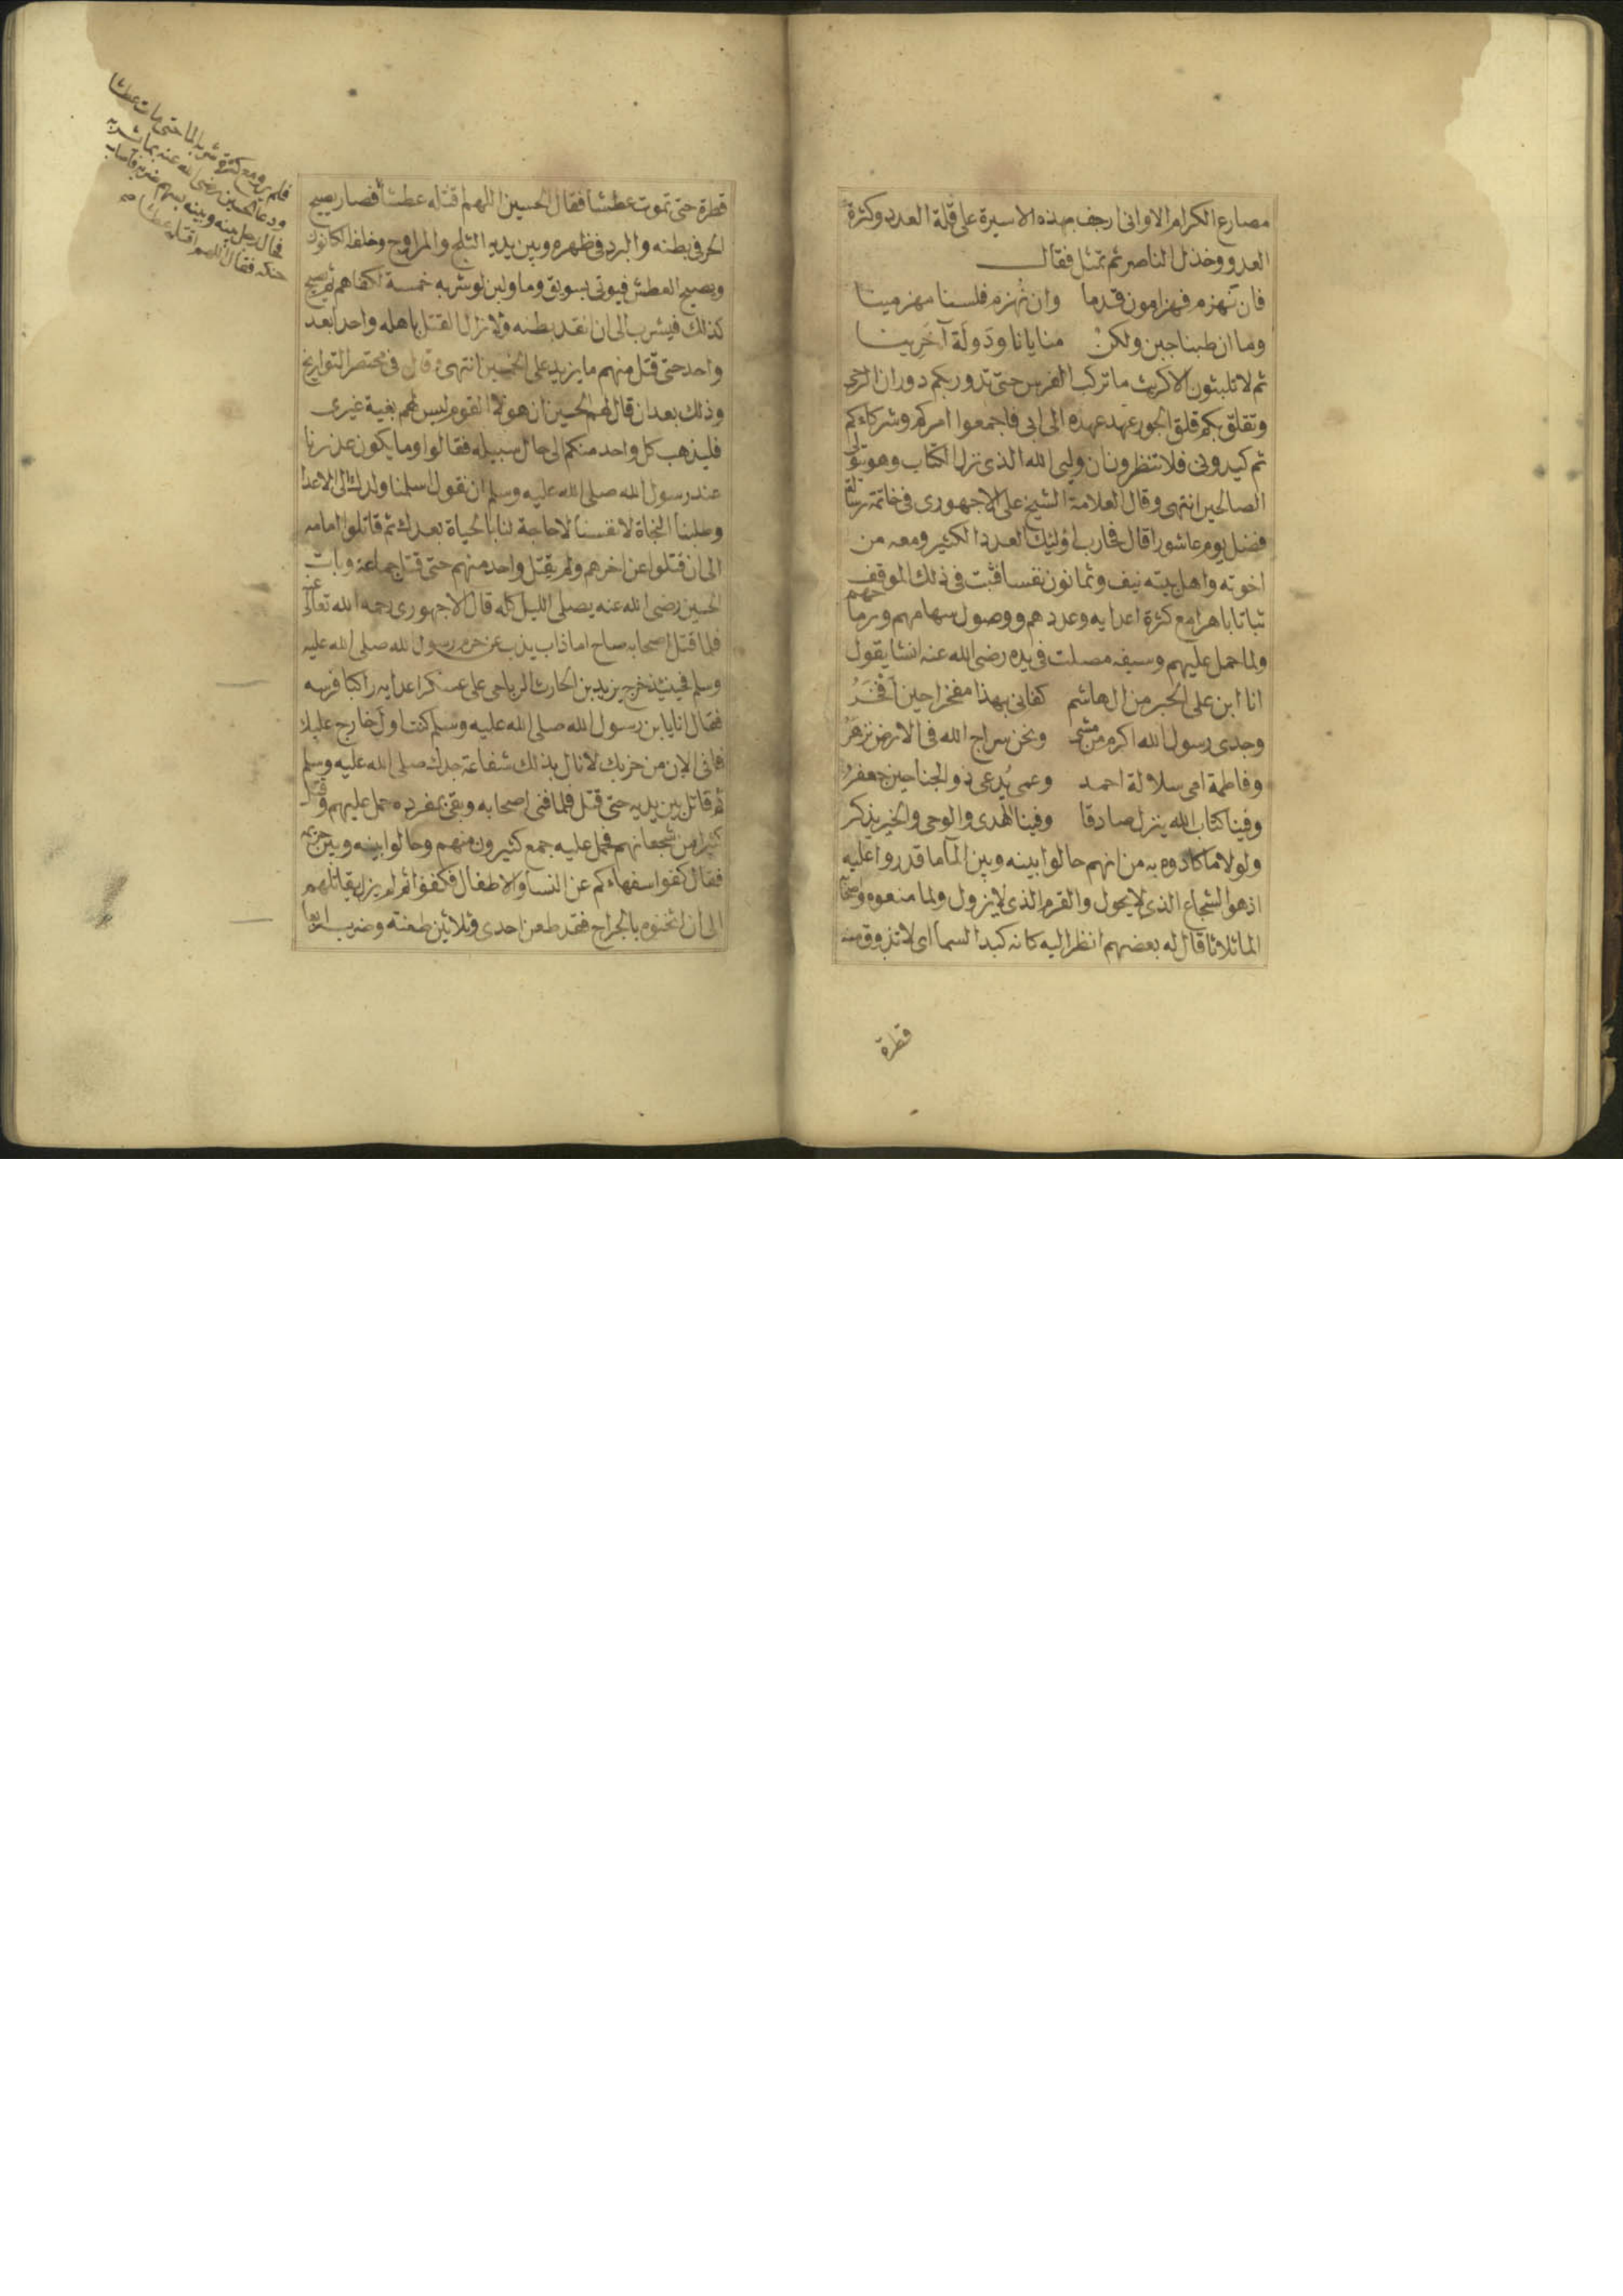 مصارع الكرام الا واني ارجف بهذه الاسيرة على قلة العدد وكثرة
العدو وخذل الناصر ثم تمثل فقال
فان نهزم فهزامون قدما وان نُهزم فلسنا مهزمينا
وما ان طبنا جبن ولكن منايانا ودَولَة آخَرِينا
ثم لا تلبثون الا كريث ما تركب الفرس حتى تدور بكم دوران الرحى
وتقلق بكم قلق المحور عهد عهده الى ابى فاجمعوا امركم وشركاءكم
ثم كيدونى فلا تنظرون ان وليى الله الذى نزل الكتاب وهو يتولى
الصالحين انتهى وقال العلامة الشيخ على الاجهورى فى خاتمة رسالة
فضل يوم عاشورا قال فحارب اوليك العدد الكثير ومعه من
اخوته واهل بيته نيف وثمانون نفسا فثبت فى ذلك الموقف
ثباتا باهرا مع كثرة اعدايه وعددهم ووصول سهامهم ورماحهم
ولما حمل عليهم وسيفه مصلت فى يده رضى الله عنه انشا يقول
انا ابن على الحبر من ال هاشم كفانى بهذا مفخرا حين اَفْخَرُ
وجدى رسول الله اكرم من مشى ونحن سراج الله فى الارض نزهَرُ
وفاطمة امى سلالة احمد وعمى يُدعى ذو الجناحين جعفرُ
وفينا كتاب الله ينزل صادقا وفينا الهدى والوحى والخير يذكر
ولولا ما كادوه به من انهم حالوا بينه وبين الما ما قدروا عليه
اذ هو الشجاع الذى لا يحول والقرم الذى لا يزول ولما منعوه واصحابه
الما ثلاثا قال له بعضهم انظر اليه كانه كبد السما اى لا تذوق منه
قطرة
قطرة حتى تموت عطشا فقال الحسين اللهم اقتله عطشا فصار يصيح
الحر فى بطنه والبرد فى ظهره وبين يديه الثلج والمراوح وخلفه الكانون
ويصيح العطش فيوتى بسويق وما ولبن لو شربه خمسة لكفاهم ثم يصيح
كذلك فيشرب الى ان انقد بطنه ولا زال القتل باهله واحدا بعد
واحد حتى قتل منهم ما يزيد على الخمسين انتهى وقال فى مختصر التواريخ
وذلك بعد ان قال لهم الحسين ان هولا القوم ليس لهم بغية غيرى
فليذهب كل واحد منكم الى حال سبيله فقالوا وما يكون عذرنا
عند رسول الله صلى الله عليه وسلم ان نقول اسلمنا ولدك الى الاعدا
وطلبنا النجاة لانفسنا لا حاجة لنا بالحياة بعدك ثم قاتلوا امامه
الى ان قتلوا عن اخرهم ولم يقتل واحد منهم حتى قتل جماعة وبات
الحسين رضى الله عنه يصلى الليل كله قال الاجهورى رحمه الله تعالى عنه
فلما قتل اصحابه صاح اما ذاب يذب عن حرم رسول الله صلى الله عليه
وسلم فحينيذ خرج يزيد بن الحارث الرياحى على عسكر اعدايه راكبا فرسه
فقال انا يا بن رسول الله صلى الله عليه وسلم كنت اول خارج عليك
فانى الان من حزبك لانال بذلك شفاعة جدك صلى الله عليه وسلم
ثم قاتل بين يديه حتى قتل فلما فنى اصحابه وبقى بمفرده حمل عليهم وقتل
كثيرا من شجعانهم فحمل عليه جمع كثيرون منهم وحالوا بينه وبين حريمه
فقال كفوا سفهاءكم عن النسا والاطفال فكفوا ثم لم يزل يقاتلهم
الى ان اثخنوه بالجراح فقد طعن احدى وثلاثين طعنة وضرب اربعا
فلم يرو مع كثرة شربه الما حتى مات عطشا
ودعا الحسين رضى الله عنه بما يشربه
فحال رجل بينه وبينه بسهم ضربه فاصاب
حنكه فقال اللهم اقتله عطشا صح